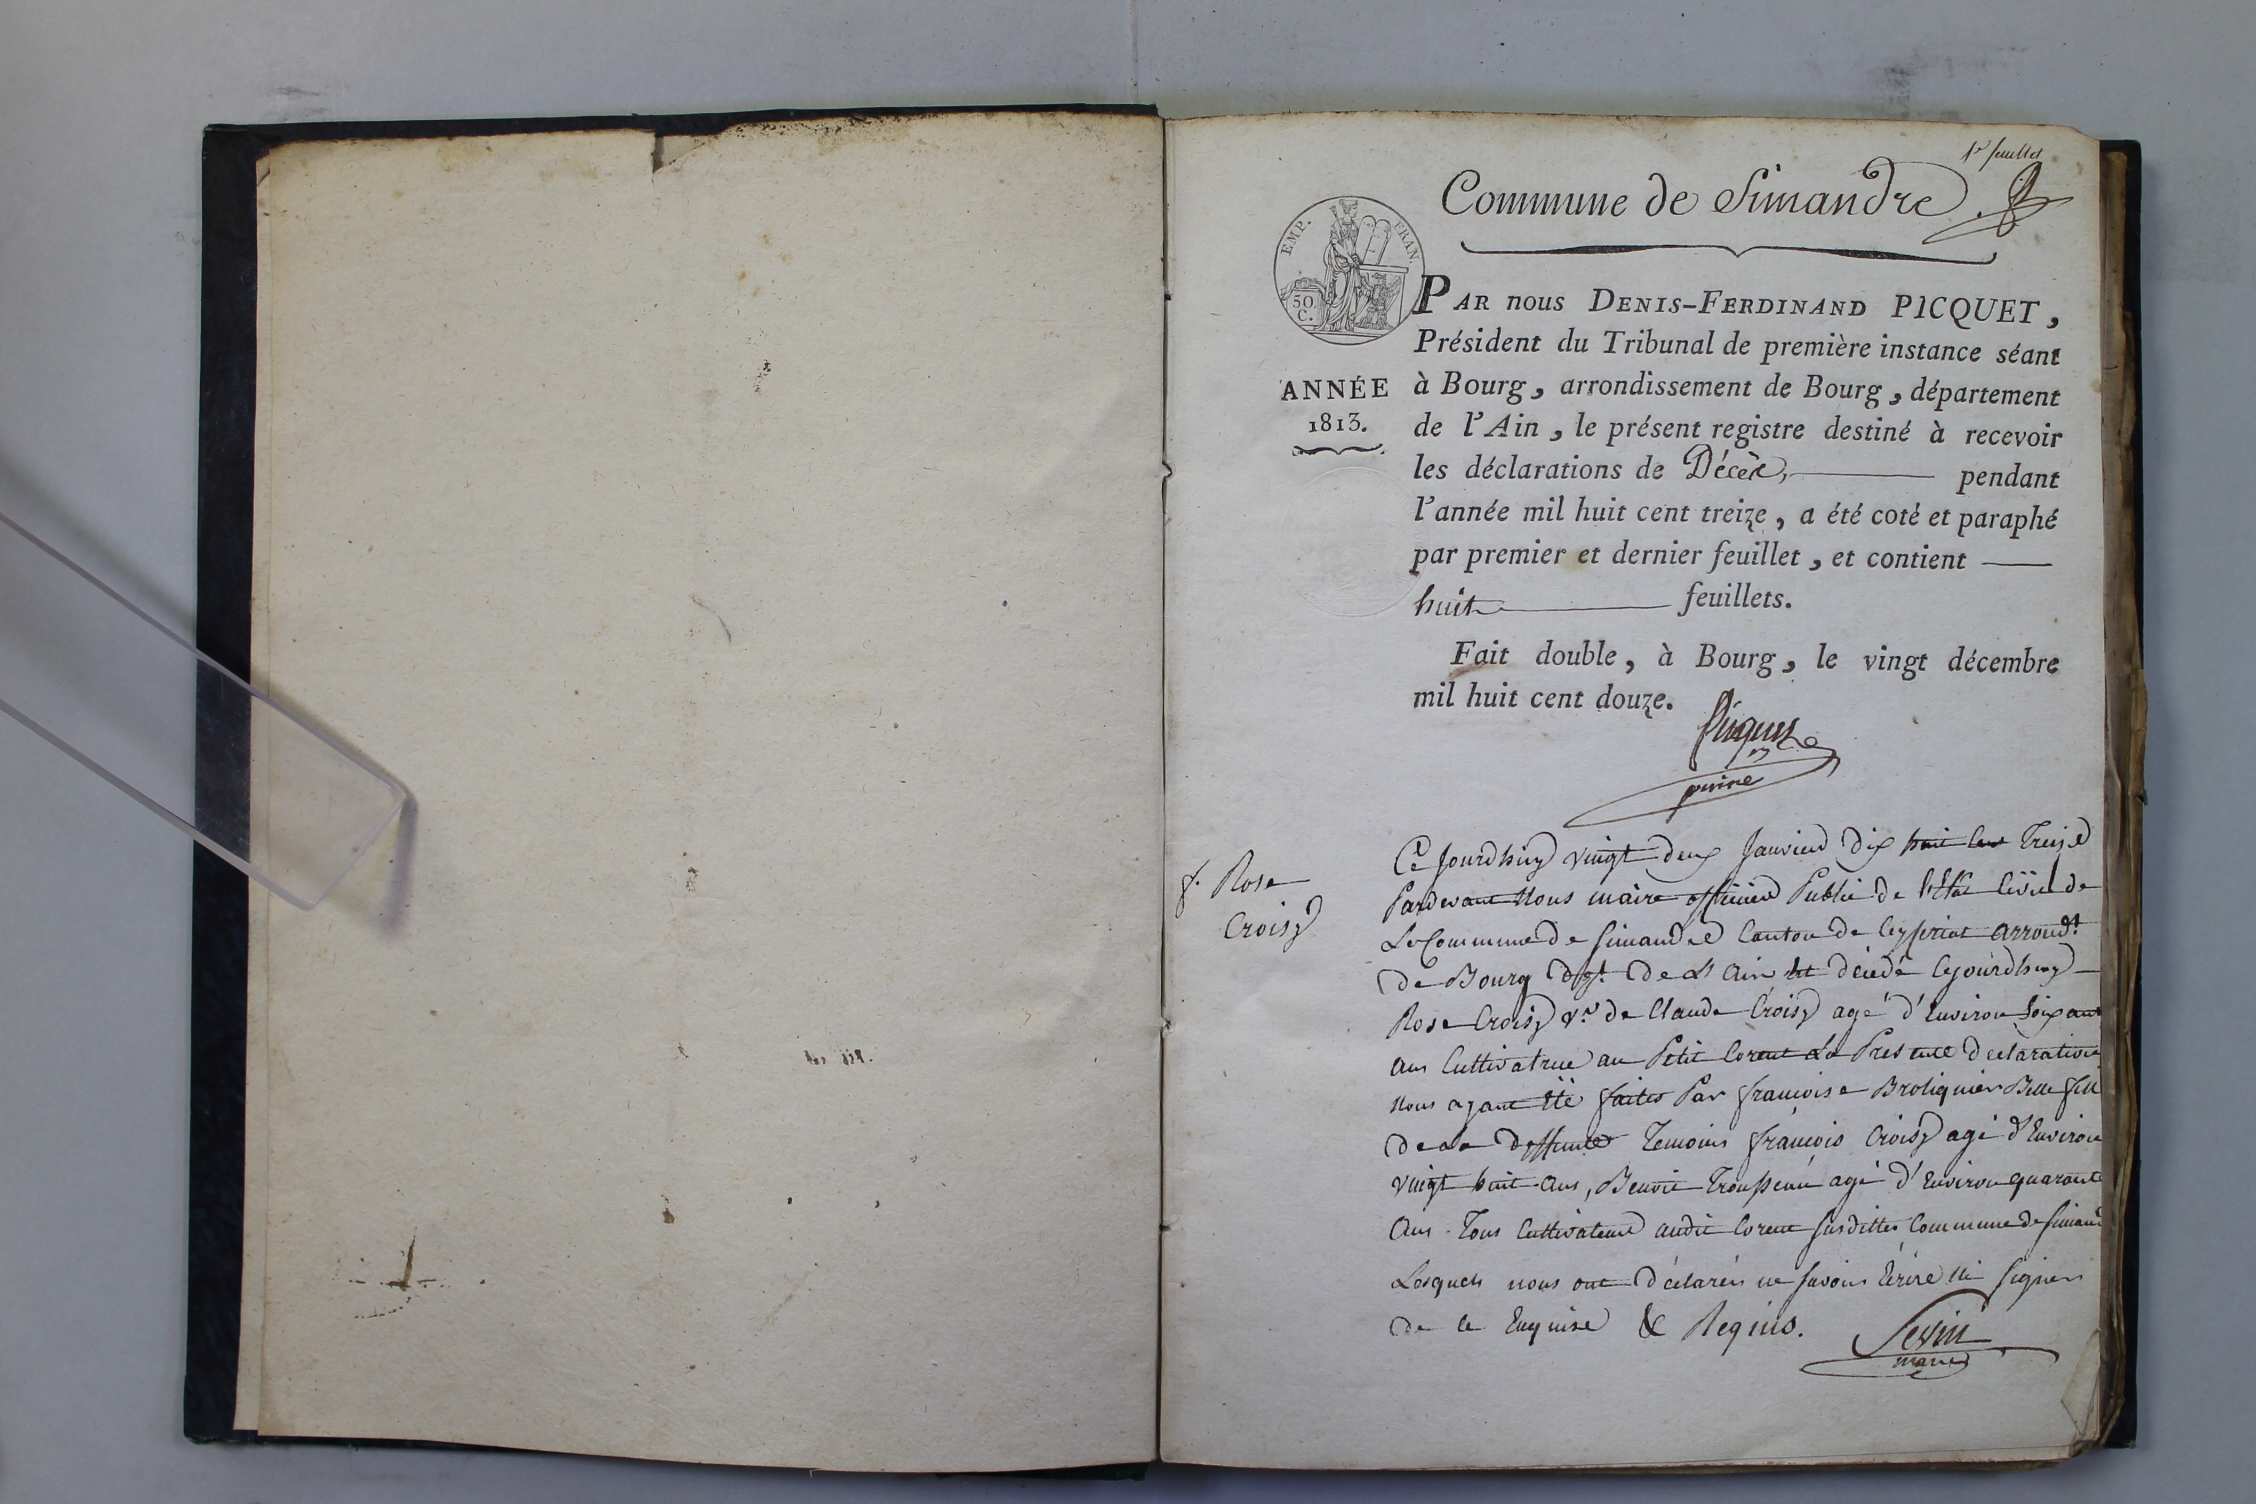 1er feuillet
Commune de Simandre
EMP. FRAN.
50
C.
PAR nous DENIS-FERDINAND PICQUET,
Président du Tribunal de première instance séant
ANNÉE
1813.
à Bourg, arrondissement de Bourg, département
de l'Ain, le présent registre destiné à recevoir
les déclarations de Décès, pendant
l'année mil huit cent treize, a été coté et paraphé
par premier et dernier feuillet, et contient
huit feuillets.
Fait double, à Bourg, le vingt décembre
mil huit cent douze.
Picquet
f. Rose
Croisy
Ce Jourdhuy vingt deux Janvier Dix huit Cent Treize
Pardevant Nous maire officier Public de l'état Civil de
La Commune de Simandre Canton de Ceyseriat arrondt.
de Bourg Dpt. De L'Ain est décédé Cejourdhuy
Rose Croisy Ve. de Claude Croisy agé d'Environ Soixant
ans Cultivatrice au Petit Corent La Presente declaration
Nous ayant été faites Par françoise Broliquier Belle fill
de La deffunte Temoins françois Croisy agé d'Environ
Vingt huit ans, Benoit Trousseau agé d'Environ quarante
ans. Tous Cultivateurs audit Corent Susdittes Commune de Simand
Lesquels nous ont déclarés ne Savoir Ecrire Ni Signer
de ce Enquise & Requis.
Sevin
maire